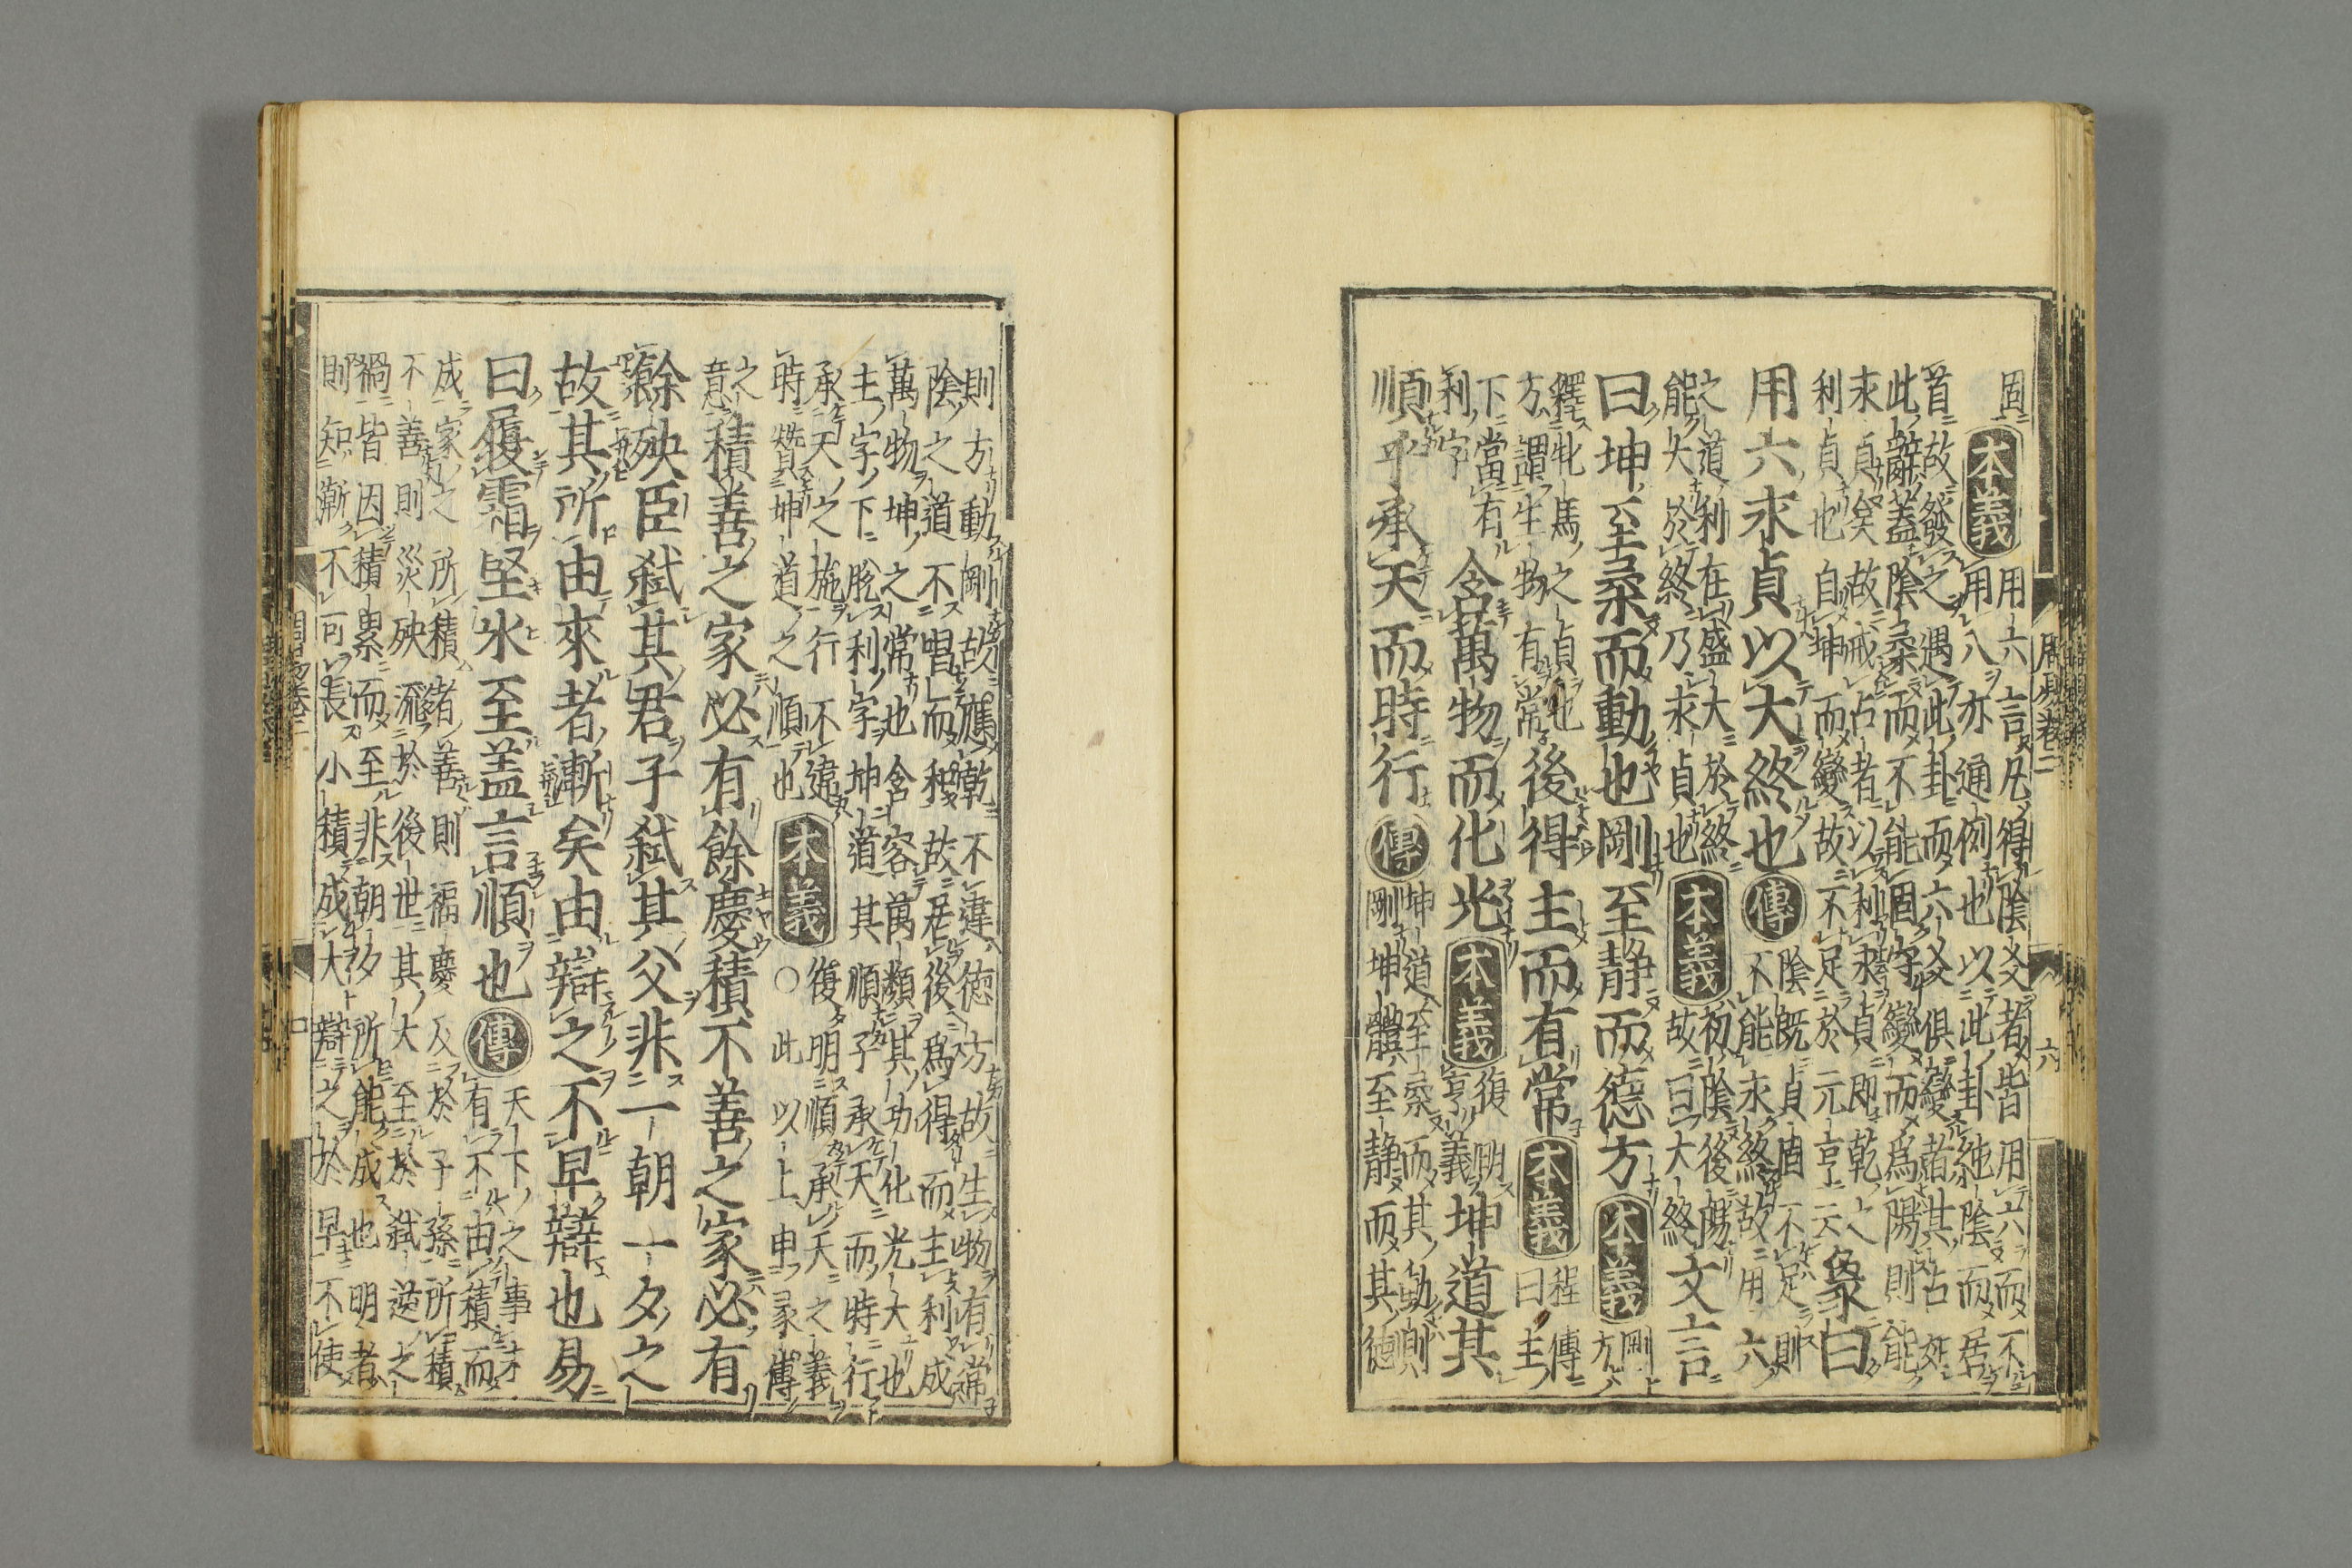 周易卷二　六
固 本義 用六言凡得陰爻者皆用六而不
用八亦通例也以此卦純陰而居
首故發之遇此卦而六爻俱變者其占如
此辭蓋陰柔而不能固守變而爲陽則能
永貞矣故戒占者以利永貞即乾之
利貞也自坤而變故不足於元亨云 彖曰
用六永貞以大終也 傳 陰既貞固不足則
不能永終故用六
之道利在盛大於終
能大於終乃永貞也 本義 初陰後陽
故曰大終 文言
曰坤至柔而動也剛至静而德方 本義 剛
方
釋牝馬之貞也
方謂生物有常 後得主而有常 本義 程傳
曰主
下當有
利字 含萬物而化光 本義 復明
亨義 坤道其
順乎承天而時行 傳 坤道至柔而其動則
剛坤體至静而其德
則方動剛故應乾不違德方故生物有常
陰之道不唱而和故居後爲得而主利成
萬物坤之常也含容萬類其功化光大也
主字下脱利字坤道其順乎承天而時行
承天之施行不違
時贊坤道之順也 本義 復明順承天之義
○此以上申彖傳
之
意 積善之家必有餘慶積不善之家必有
餘殃臣弑其君子弑其父非一朝一夕之
故其所由來者漸矣由辯之不早辯也易
曰履霜堅氷至蓋言順也 傳 天下之事未
有不由積而
成家之所積者善則福慶及於子孫所積
不善則災殃流於後世其大至於弑逆之
禍皆因積累而至非朝夕所能成也明者
則知漸不可長小積成大辯之於早不使
周易卷二